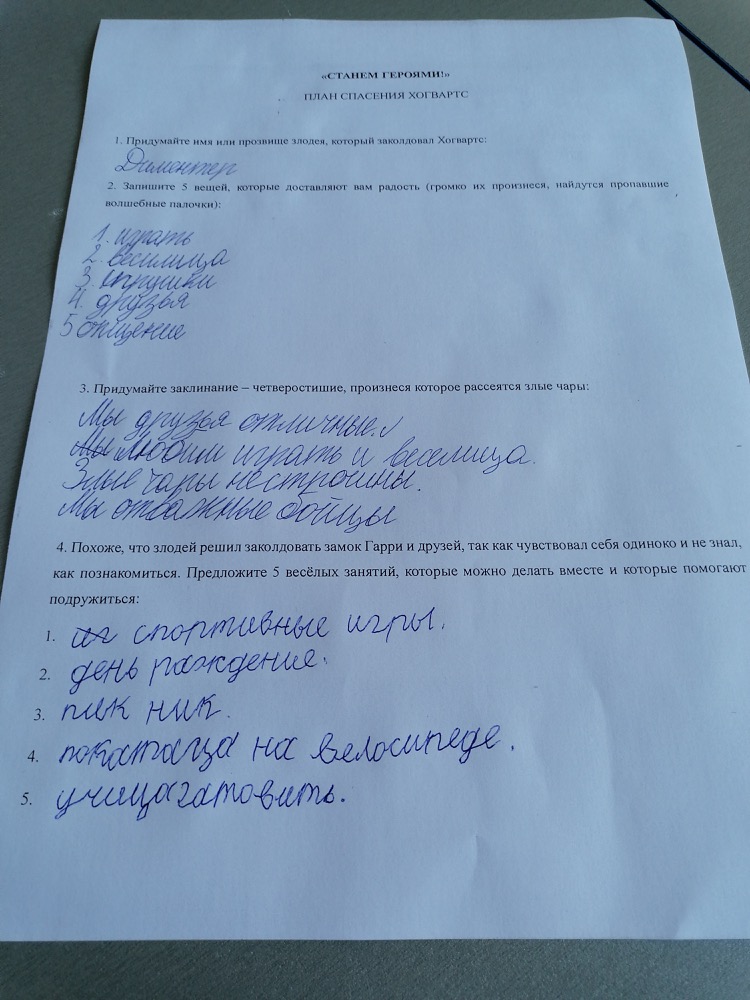 «СТАНЕМ ГЕРОЯМИ!»
ПЛАН СПАСЕНИЯ ХОГВАРТС
1. Придумайте имя или прозвище злодея, который заколдовал Хогвартс:
Диментер
2. Запишите 5 вещей, которые доставляют вам радость (громко их произнеся, найдутся пропавшие
волшебные палочки):
1. играть
2. весилица
3. игрушки
4. друзья
5 општение
3. Придумайте заклинание – четверостишие, произнеся которое рассеятся злые чары:
Мы друзья отличные.
Мы любим играть и веселица.
Злые чары нестрочины.
Мы отважные бойцы
4. Похоже, что злодей решил заколдовать замок Гарри и друзей, так как чувствовал себя одиноко и не знал,
как познакомиться. Предложите 5 весёлых занятий, которые можно делать вместе и которые помогают
подружиться:
1. спортивные игры.
2. день рождение.
3. пик ник.
4. покатаца на велосипеде.
5. учица гатовить.